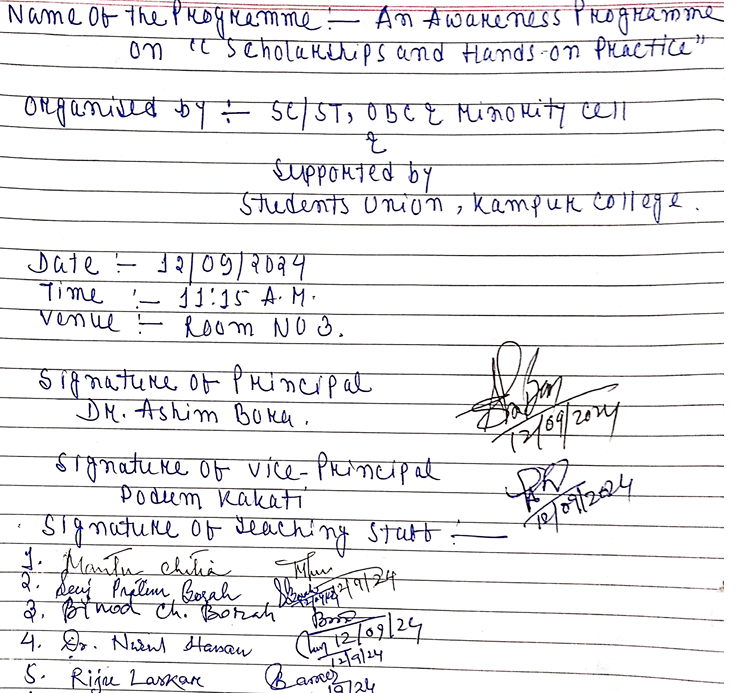 Name of the Programme :— An Awareness Programme
on "Scholarships and Hands-on Practice"
Organised by :— SC/ST, OBC & Minority cell
&
Supported by
Students Union, Kampur College.
Date :— 12/09/2024
Time :— 11:15 A.M.
Venue :— Room No 3.
Signature of Principal
Dr. Ashim Bora.
12/09/2024
Signature of Vice-Principal
Podum Kakati
12/09/2024
Signature of Teaching Staff :—
1. Mantu Chutia
2. Pratim Borah 12/9/24
3. Binod Ch. Borah
4. Dr. Nurul Hassan 12/09/24
12/9/24
5. Riju Laskar